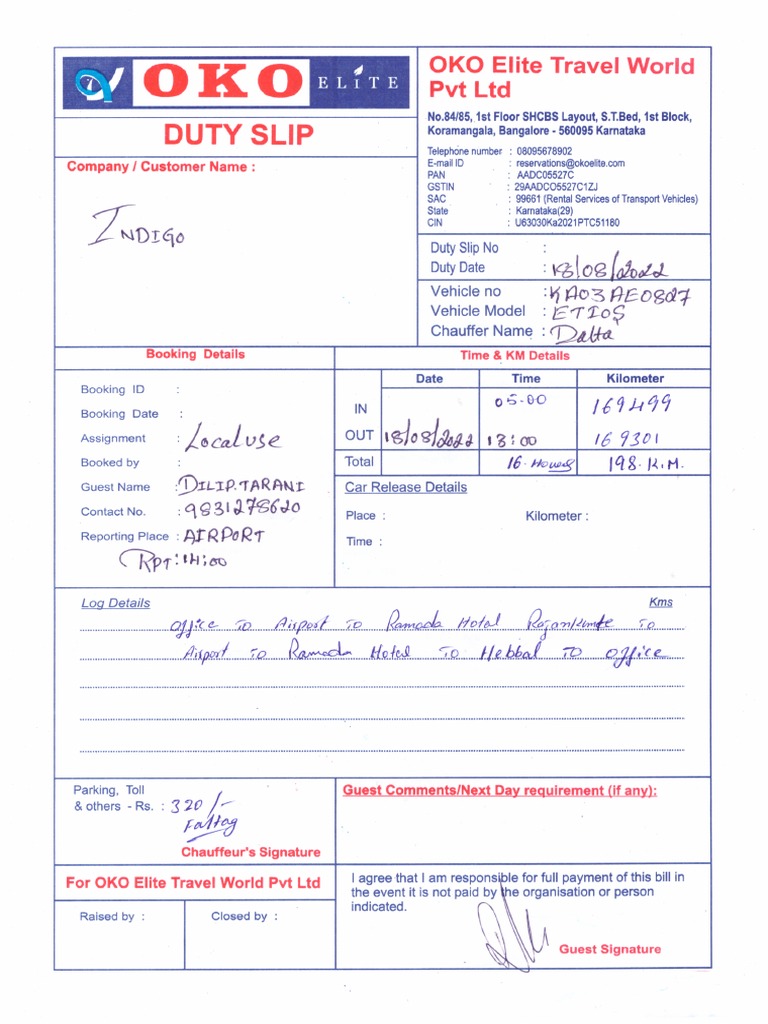 OKO ELITE
DUTY SLIP
OKO Elite Travel World
Pvt Ltd
No.84/85, 1st Floor SHCBS Layout, S.T.Bed, 1st Block,
Koramangala, Bangalore - 560095 Karnataka
Telephone number : 08095678902
E-mail ID : reservations@okoelite.com
PAN : AADC05527C
GSTIN : 29AADCO5527C1ZJ
SAC : 99661 (Rental Services of Transport Vehicles)
State : Karnataka(29)
CIN : U63030Ka2021PTC51180
Company / Customer Name :
INDIGO
Duty Slip No :
Duty Date : 18/08/2022
Vehicle no : KA03AE0827
Vehicle Model : ETIOS
Chauffer Name : Datta
Booking Details
Booking ID :
Booking Date :
Assignment : Localuse
Booked by :
Guest Name : DILIP.TARANI
Contact No. : 9831278620
Reporting Place : AIRPORT
RPT: 14:00
Time & KM Details
Date Time Kilometer
IN 05-00 169499
OUT 18/08/2022 13:00 169301
Total 16-Hours 198.K.M.
Car Release Details
Place : Kilometer :
Time :
Log Details Kms
Office TO Airport TO Ramada Hotal Rajankunte TO
Airport TO Ramada Hotel TO Hebbal TO Office
Parking, Toll
& others - Rs. : 320/-
Fattag
Chauffeur's Signature
Guest Comments/Next Day requirement (if any):
For OKO Elite Travel World Pvt Ltd
Raised by : Closed by :
I agree that I am responsible for full payment of this bill in
the event it is not paid by the organisation or person
indicated.
Guest Signature